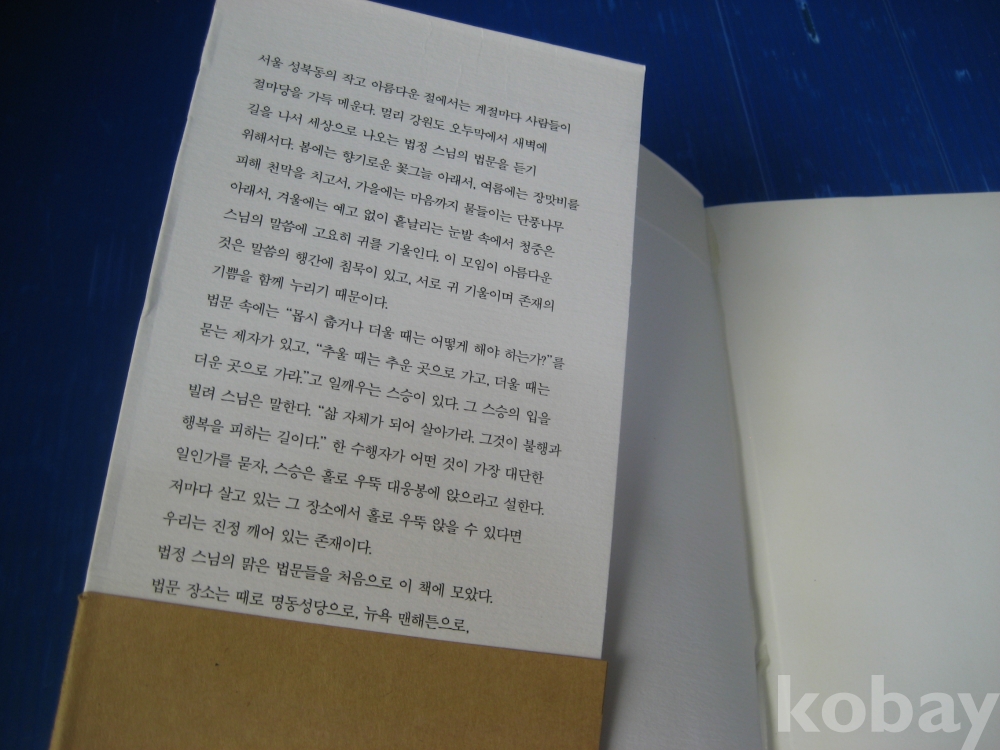 서울 성북동의 작고 아름다운 절에서는 계절마다 사람들이
절마당을 가득 메운다. 멀리 강원도 오두막에서 새벽에
길을 나서 세상으로 나오는 법정 스님의 법문을 듣기
위해서다. 봄에는 향기로운 꽃그늘 아래서, 여름에는 장맛비를
피해 천막을 치고서, 가을에는 마음까지 물들이는 단풍나무
아래서, 겨울에는 예고 없이 흩날리는 눈발 속에서 청중은
스님의 말씀에 고요히 귀를 기울인다. 이 모임이 아름다운
것은 말씀의 행간에 침묵이 있고, 서로 귀 기울이며 존재의
기쁨을 함께 누리기 때문이다.
법문 속에는 “몹시 춥거나 더울 때는 어떻게 해야 하는가?”를
묻는 제자가 있고, “추울 때는 추운 곳으로 가고, 더울 때는
더운 곳으로 가라.”고 일깨우는 스승이 있다. 그 스승의 입을
빌려 스님은 말한다. “삶 자체가 되어 살아가라. 그것이 불행과
행복을 피하는 길이다.” 한 수행자가 어떤 것이 가장 대단한
일인가를 묻자, 스승은 홀로 우뚝 대웅봉에 앉으라고 설한다.
저마다 살고 있는 그 장소에서 홀로 우뚝 앉을 수 있다면
우리는 진정 깨어 있는 존재이다.
법정 스님의 맑은 법문들을 처음으로 이 책에 모았다.
법문 장소는 때로 명동성당으로, 뉴욕 맨해튼으로,
kobay